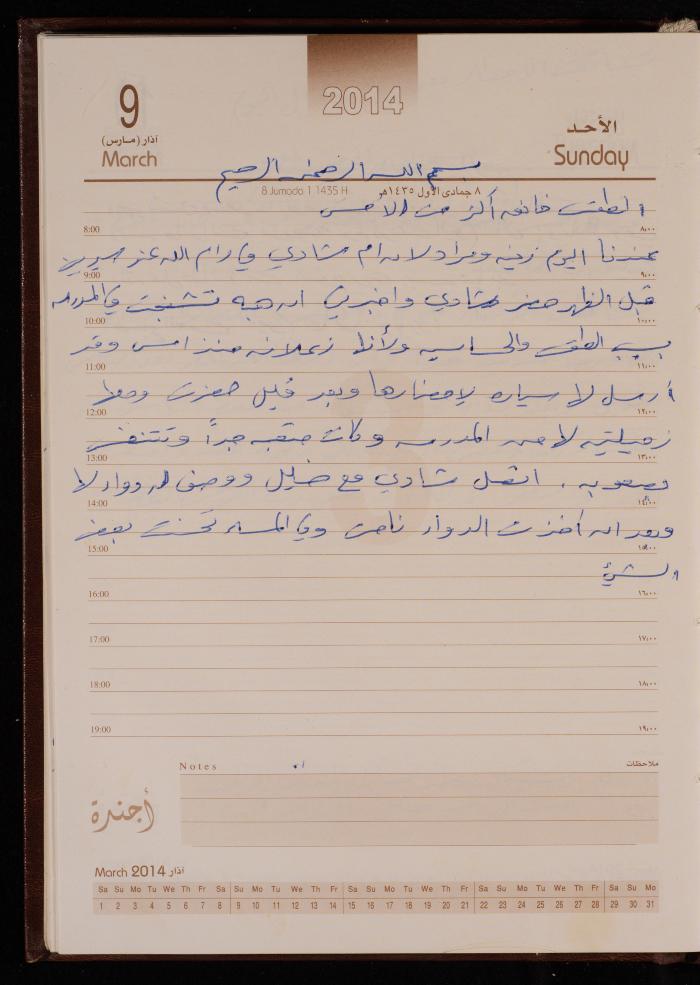 2014
9
آذار (مارس)
March
الأحد
Sunday
بسم الله الرحمن الرحيم
8 Jumada 1 1435 H
٨ جمادى الأول ١٤٣٥هـ
الطقس خانق أكثر من الأمس
8:00 ٨،٠٠
عندنا اليوم زينه ومراد لان ام شادي في رام الله عند سيرين
9:00 ٩،٠٠
قبل الظهر حضر شادي واخبرني ان هبه تشنجت في المدرسه
10:00 ١٠،٠٠
بسبب الطقس والحساسيه ولأنها زعلانه منذ امس وقد
11:00 ١١،٠٠
أرسل لها سياره لإحضارها وبعد قليل حضرت ومعها
12:00 ١٢،٠٠
زميلتين لها من المدرسه وكانت متعبه جداً وتتنفس
13:00 ١٣،٠٠
بصعوبه . اتصل شادي مع خليل ووصف لها دواء
14:00 ١٤،٠٠
وبعد ان أخذت الدواء نامت وفي المساء تحسنت بعض
15:00 ١٥،٠٠
الشيء
16:00 ١٦،٠٠
17:00 ١٧،٠٠
18:00 ١٨،٠٠
19:00 ١٩،٠٠
Notes ملاحظات
أجندة
March 2014 آذار
Sa Su Mo Tu We Th Fr Sa Su Mo Tu We Th Fr Sa Su Mo Tu We Th Fr Sa Su Mo Tu We Th Fr Sa Su Mo
1 2 3 4 5 6 7 8 9 10 11 12 13 14 15 16 17 18 19 20 21 22 23 24 25 26 27 28 29 30 31